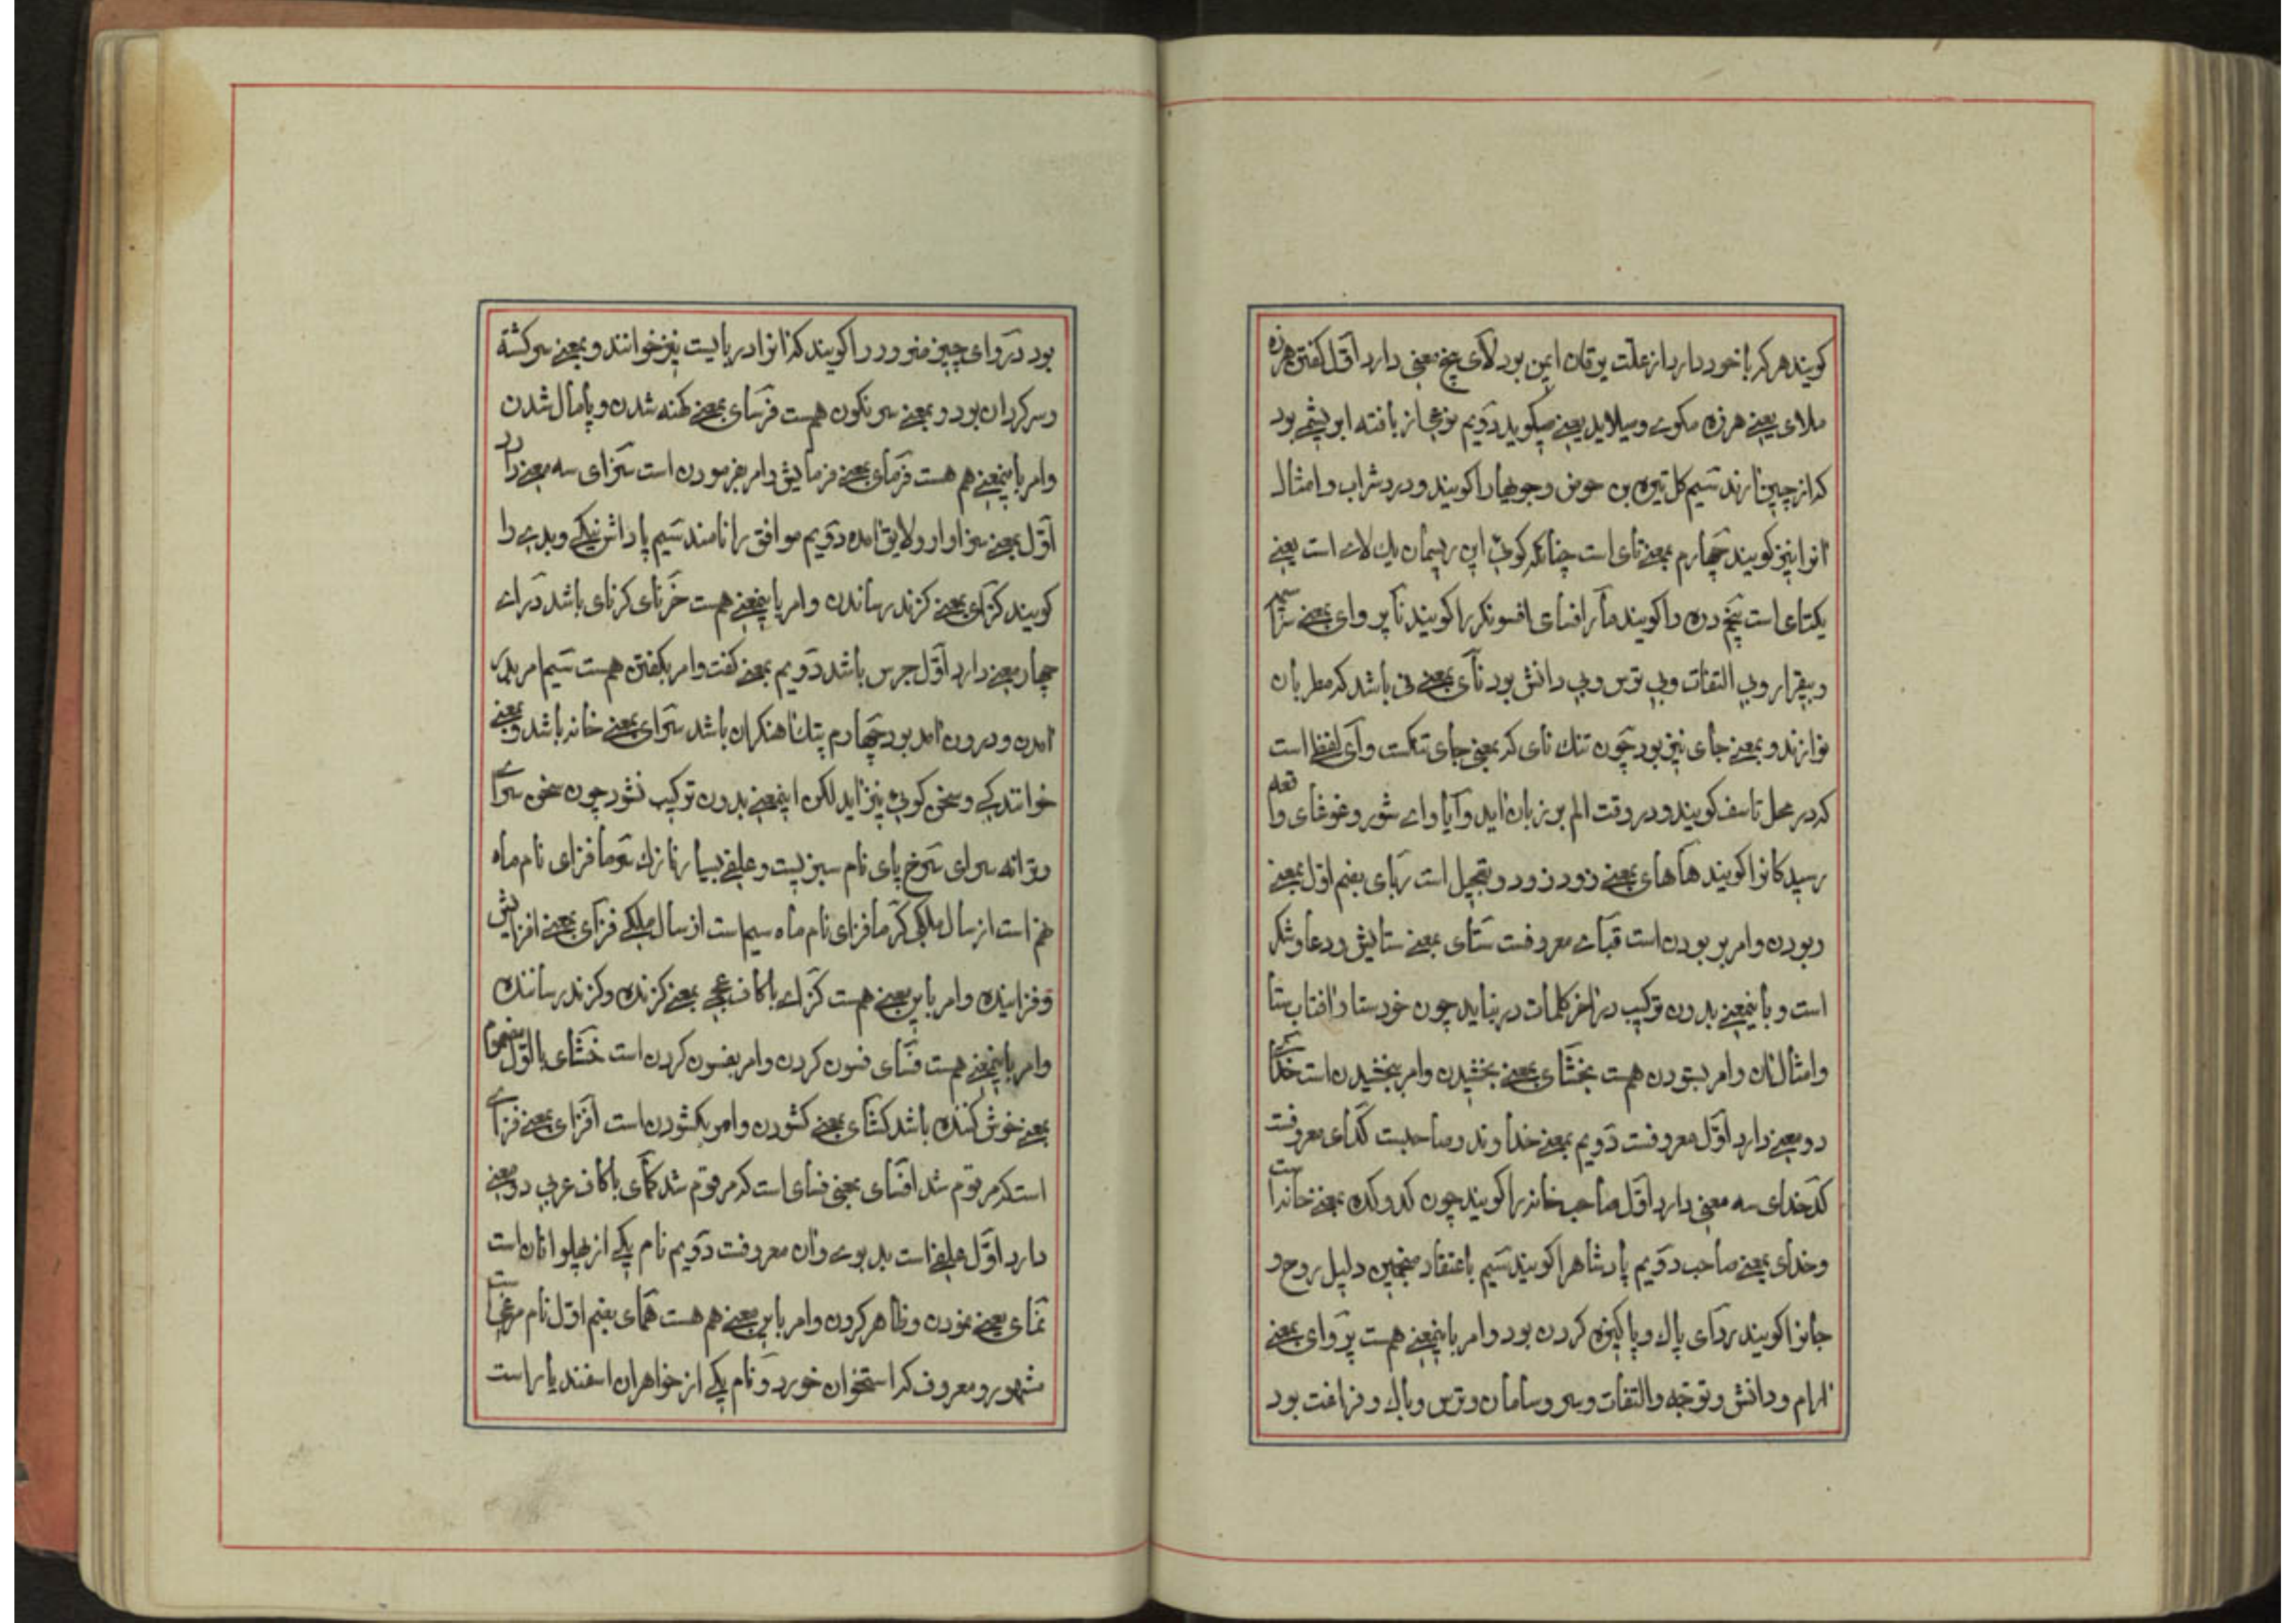 کویند هر که با خود دارد از علت یرقان ایمن بود لآی پنج معنی دارد اوّل کفتن هرزه
ملای یعنے هرزه مکوے و میلاید یعنے میکوید دوّیم نوعی از بافته ابریشمی بود
که از چین آرند سیّم کل تیره بن حوض و جویها را کویند و درد شراب و امثال
آنرا نیز کویند چهارم بمعنے تای است چنانکه کوئی این ریسمان یك لاے است یعنے
یکتای است پنجم دره را کویند مار افسای افسونکر را کویند نآ پروای بمعنے
و بیقرار و بی التفات و بی ترس و بی دانش بود نآی بمعنے نی باشد که مطربان
نوازند و بمعنے جای نیز بود چون تنك نای که بمعنی جای تنکست وآی لفظ است
که در محل تاسف کویند و در وقت الم بر زبان آید و آیا واے شور و غوغای واقعه
رسیدکانرا کویند هآهای بمعنے زود زود و بتعجیل است ربای بضم اوّل بمعنے
ربودن و امر بر بودن است قبآے معروفست ستای بمعنے ستایش و دعا و شکر
است و باینمعنے بدون ترکیب در آخر کلمات در نیاید چون خودستا و آفتاب ستا
و امثال آن و امر بستودن هست بخشآی بمعنے بخشیدن و امر ببخشیدن است خدآے
دو معنے دارد اوّل معروفست دوّیم بمعنے خداوند و صاحبست کدآی معروفست
کدخدای سه معنی دارد اوّل صاحب خانه را کویند چون کد و کده بمعنے خانه است
و خدای بمعنے صاحب دوّیم پادشاه را کویند سیّم باعتقاد منجمین دلیل روح و
جانرا کویند زدآی پاك و پاکیزه کردن بود و امر باینمعنے هست پروای بمعنے
آرام و دانش و توجّه و التفات و سر و سامان و ترس و باك و فراغت بود
بود دروای چیز ضرور را کویند که آنرا دربایست نیز خوانند و بمعنے سرکشته
و سرکردان بود و بمعنے سرنکون هم هست فرسای بمعنے کهنه شدن و پامال شدن
و امر باینمعنے هم هست فرمآی بمعنے فرمایش و امر بفرمودن است سزای سه معنے دارد
اوّل بمعنے سزاوار و لایق آمده دوّیم موافق را نامند سیّم پاداش نیکے و بدے را
کویند کزآی بمعنے کزند رساندن و امر باینمعنے هست خرنای کرنای باشد درآے
چهار معنے دارد اوّل جرس باشد دوّیم بمعنے کفت و امر بکفتن هست سیّم امر بدر
آمدن و درون آمد بود چهارم پتك آهنکران باشد سرای بمعنے خانه باشد و بمعنے
خوانندکے و سخن کوئی نیز آید لکن اینمعنے بدون ترکیب نشود چون سخن سرآے
و ترانه سرای سرخ پای نام سبزیست و علفے بسیار نازك سرما فزای نام ماه
هم است از سال ملکی کرما فزای نام ماه سیم است از سال ملکے فزآی بمعنے افزایش
و فزاینده و امر باین معنے هست کزاے با کاف عجمی بمعنے کزنده و کزند رساننده
و امر باینمعنے هست فسآی فسون کردن و امر بفسون کردن است خشآی با اوّل مضموم
بمعنے خوش کننده باشد کشآی بمعنے کشودن و امر بکشودن است افزای بمعنے فزآے
است که مرقوم شد افسآی بمعنی فسای است که مرقوم شد کمآی با کاف عربی دو معنے
دارد اوّل علفے است بدبوے و آن معروفست دوّیم نام یکے از پهلوانان است
نمآی یعنے نمودن و ظاهر کردن و امر باین معنے هم هست همآی بضم اوّل نام مرغیست
مشهور و معروف که استخوان خورد و نام یکے از خواهران اسفندیار است